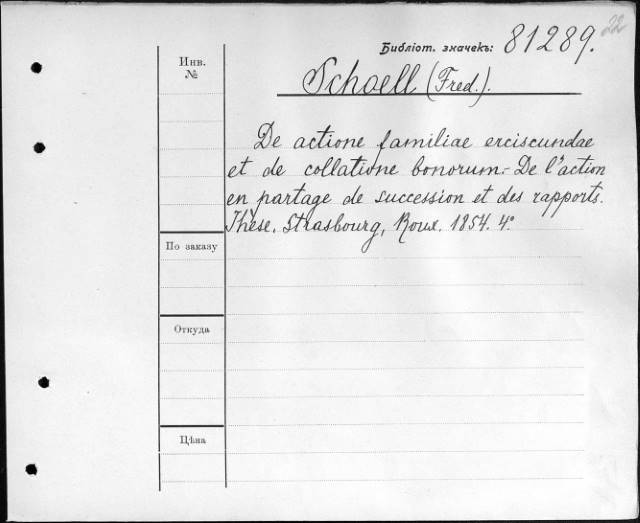 22
Библіот. значекъ: 81289.
Инв.
№
Schoell (Fred.).
De actione familiae erciscundae
et de collatione bonorum.- De l'action
en partage de succession et des rapports.
Thèse. Strasbourg, Roux. 1854. 4°
По заказу
Откуда
Цѣна